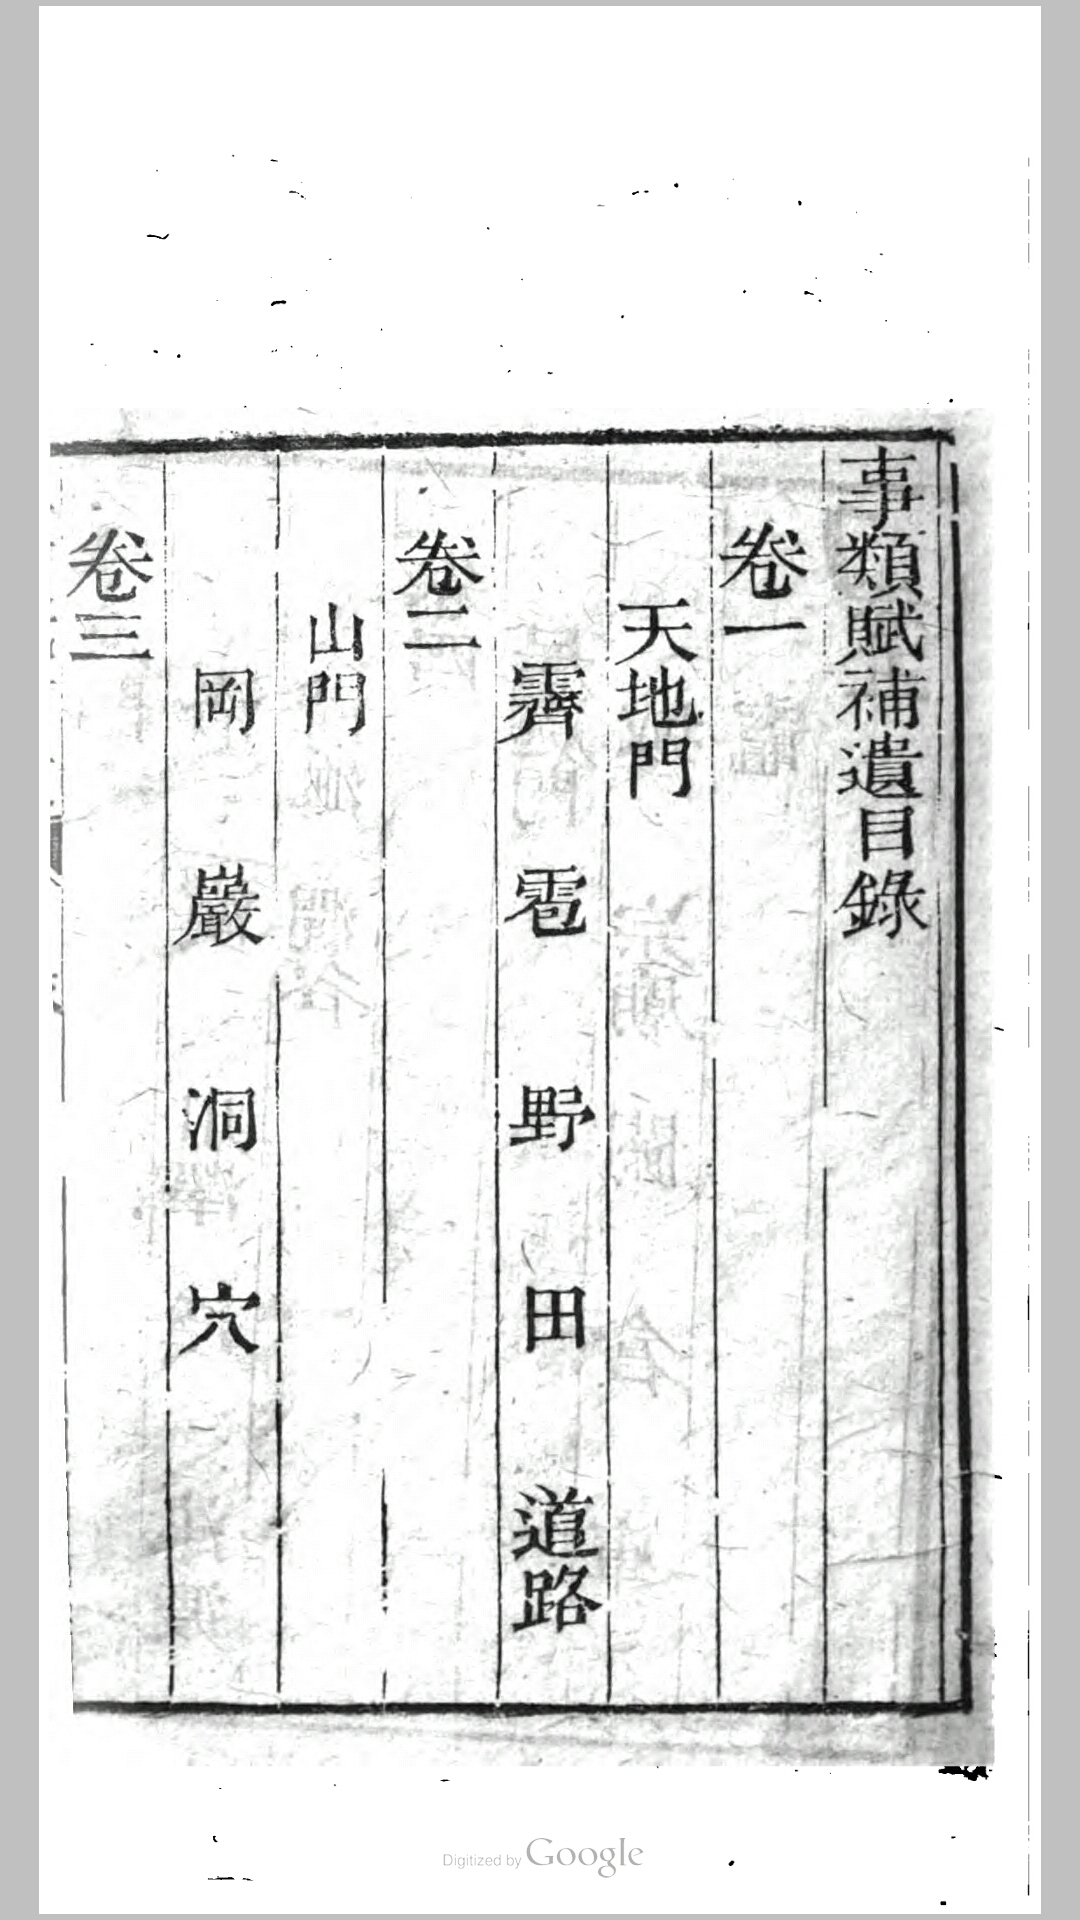 事類賦補遺目錄
卷一
天地門
霽 雹 野 田 道路
卷二
山門
岡 巖 洞 穴
卷三
Digitized by Google